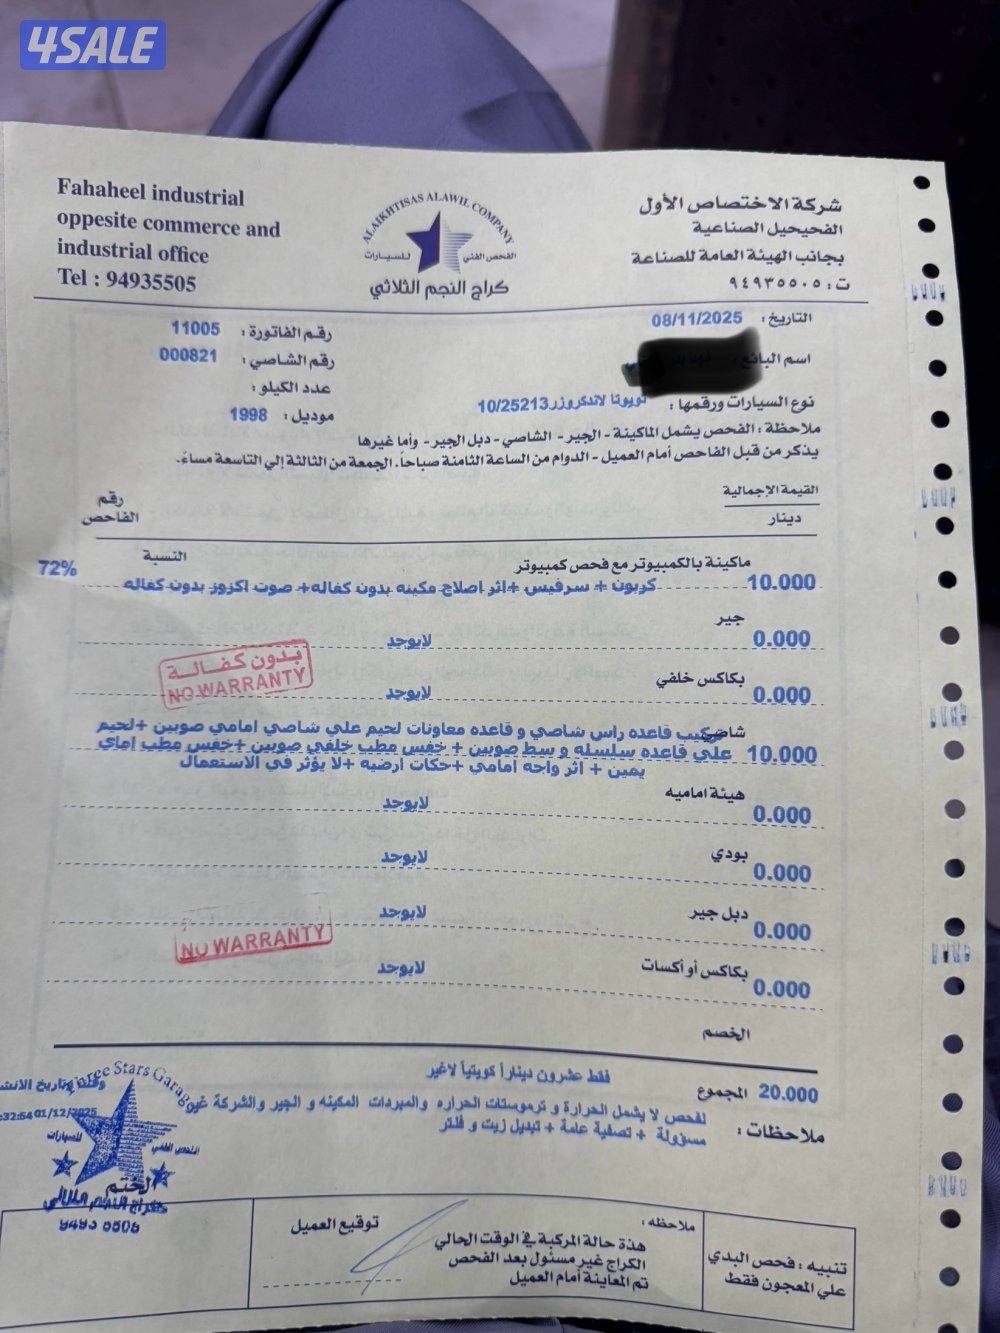 4SALE
Fahaheel industrial
oppesite commerce and
industrial office
Tel : 94935505
ALAIKHTISAS ALAWIL COMPANY
الفحص الفني للسيارات
كراج النجم الثلاثي
شركة الاختصاص الأول
الفحيحيل الصناعية
بجانب الهيئة العامة للصناعة
ت : ٩٤٩٣٥٥٠٥
التاريخ : 08/11/2025
رقم الفاتورة : 11005
اسم البائع :
رقم الشاصي : 000821
عدد الكيلو :
نوع السيارات ورقمها : تويوتا لاندكروزر 10/25213
موديل : 1998
ملاحظة : الفحص يشمل الماكينة - الجير - الشاصي - دبل الجير - وأما غيرها
يذكر من قبل الفاحص أمام العميل - الدوام من الساعة الثامنة صباحاً. الجمعة من الثالثة إلي التاسعة مساءً.
القيمة الإجمالية
دينار
رقم
الفاحص
ماكينة بالكمبيوتر مع فحص كمبيوتر
النسبة 72%
10.000 كربون + سرفيس +اثر اصلاح مكينه بدون كفاله+ صوت اكزوز بدون كفاله
جير
0.000 لايوجد
بدون كفالة
NO WARRANTY
بكاكس خلفي
0.000 لايوجد
شاصي
تركيب قاعده راس شاصي و قاعده معاونات لحيم علي شاصي امامي صوبين +لحيم
10.000 علي قاعده سلسله و سط صوبين + خفس مطب خلفي صوبين +خفس مطب امامي
يمين + اثر واجه امامي +حكات ارضيه +لا يؤثر في الاستعمال
هيئة اماميه
0.000 لايوجد
بودي
0.000 لايوجد
دبل جير
0.000 لايوجد
NO WARRANTY
بكاكس أو أكسات
0.000 لايوجد
الخصم
فقط عشرون ديناراً كويتياً لاغير
20.000 المجموع
ملاحظات : لفحص لا يشمل الحرارة و ترموستات الحراره والمبردات المكينه و الجير والشركة غير
مسؤولة + تصفية عامة + تبديل زيت و فلتر
وقت وتاريخ الانش
:32:54 01/12/2025
Three Stars Garage
الفحص الفني للسيارات
الختم
كراج النجم الثلاثي
9493 5505
تنبيه : فحص البدي
علي المعجون فقط
ملاحظه :
هذة حالة المركبة في الوقت الحالي
الكراج غير مسئول بعد الفحص
تم المعاينة أمام العميل
توقيع العميل